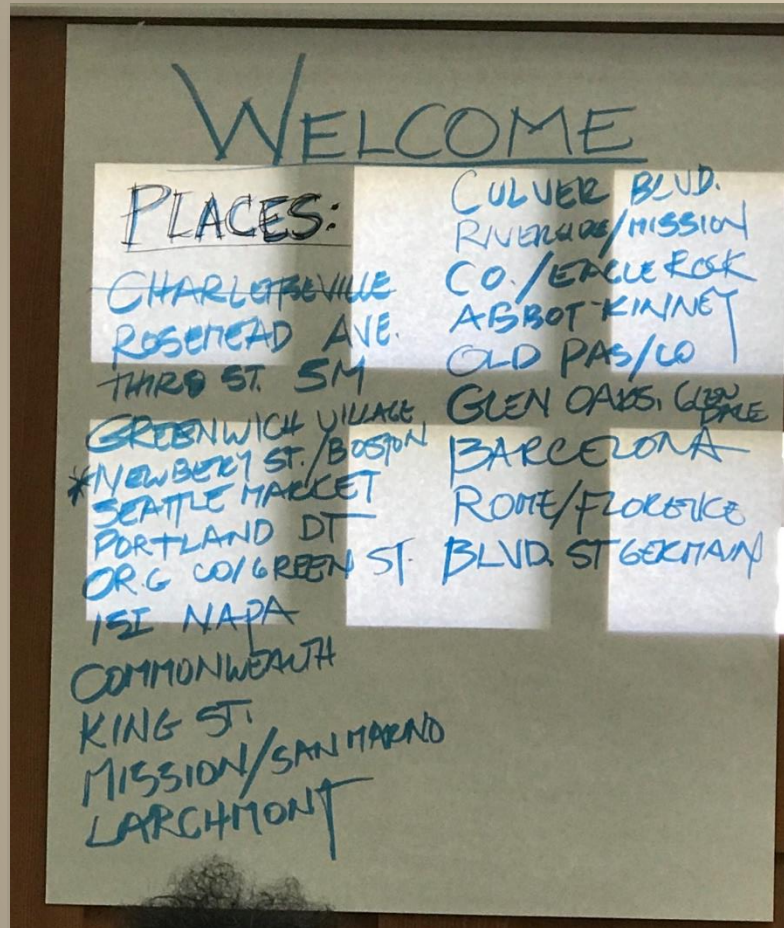 WELCOME
PLACES:
CHARLOTTESVILLE
ROSEMEAD AVE.
THIRD ST. SM
GREENWICH VILLAGE
*NEWBERY ST./BOSTON
SEATTLE MARKET
PORTLAND DT
ORG CO/GREEN ST.
1ST NAPA
COMMONWEALTH
KING ST.
MISSION/SAN MARNO
LARCHMONT
CULVER BLVD.
RIVERSIDE/MISSION
CO./EAGLE ROCK
ABBOT-KINNEY
OLD PAS/CO
GLEN OAKS, GLENDALE
BARCELONA
ROME/FLORENCE
BLVD. ST GERMAIN